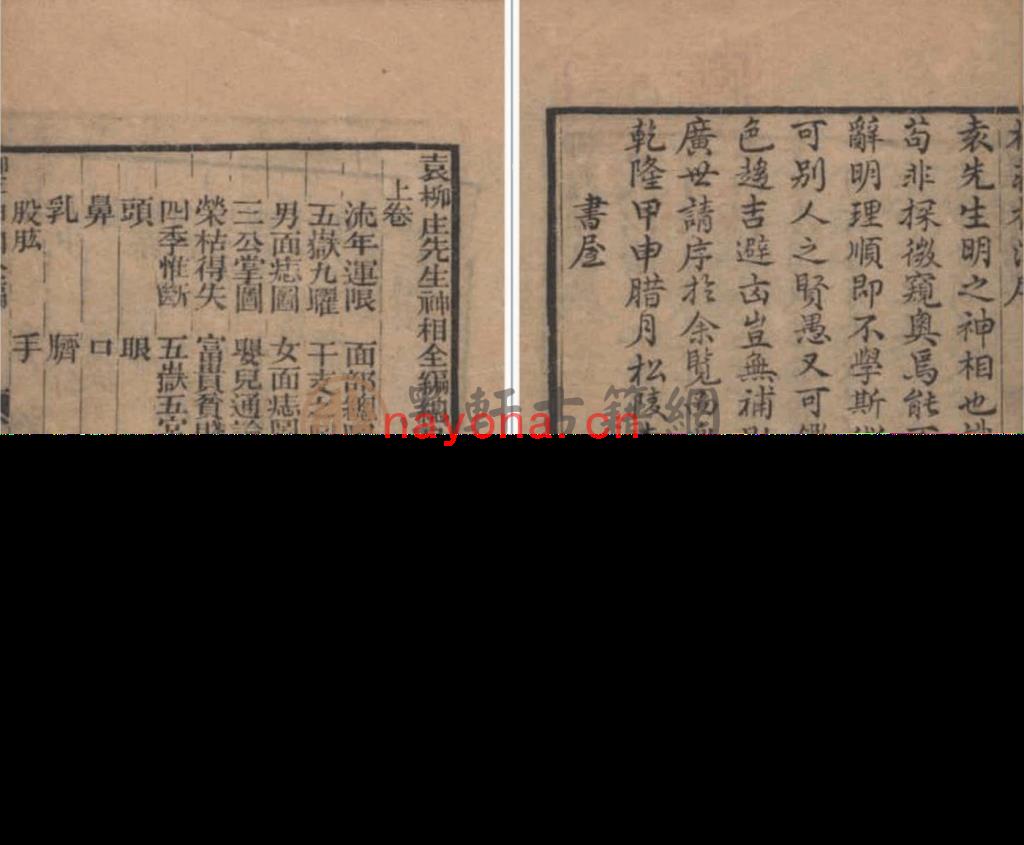 袁先生明之神相也
苟非探微窺奧焉能
辭明理順即不學斯
可別人之賢愚又可
色趨吉避凶豈無補
廣世請序於余覽
乾隆甲申腊月松陵
書屋
袁柳庄先生神相全編總
上卷
流年運限 面部總
五嶽九曜 干支
男面痣圖 女面痣圖
三公掌圖 嬰兒通論
榮枯得失 富貴貧賤
四季惟斷 五嶽五官
頭 眼
鼻 口
乳 臍
股肱 手
墨軒古籍網
nayona.cn